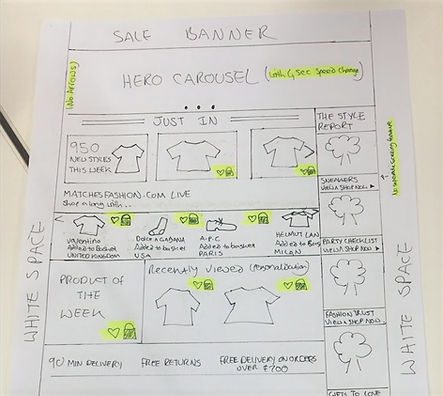 SALE BANNER
(NO ARROWS)
HERO CAROUSEL (with 4 sec speed change)
JUST IN
THE STYLE
REPORT
950
NEW STYLES
THIS WEEK
SNEAKERS
VIEW & SHOP NOW
MATCHESFASHION.COM LIVE
Shop along with...
Valentino
Added to Basket
UNITED KINGDOM
DOLCE & GABANA
Added to basket
USA
A.P.C
Added to basket
PARIS
HELMUT LAN
Added to Bas
MILAN
PARTY CHECKLIST
VIEW & SHOP NOW
PRODUCT OF
THE
WEEK
Recently Viewed (personalisation)
FASHION TRUST
VIEW & SHOP NOW
90 MIN DELIVERY
FREE RETURNS
FREE DELIVERY ON ORDERS
OVER £200
GIFTS TO LOVE
WHITE SPACE
WHITE SPACE